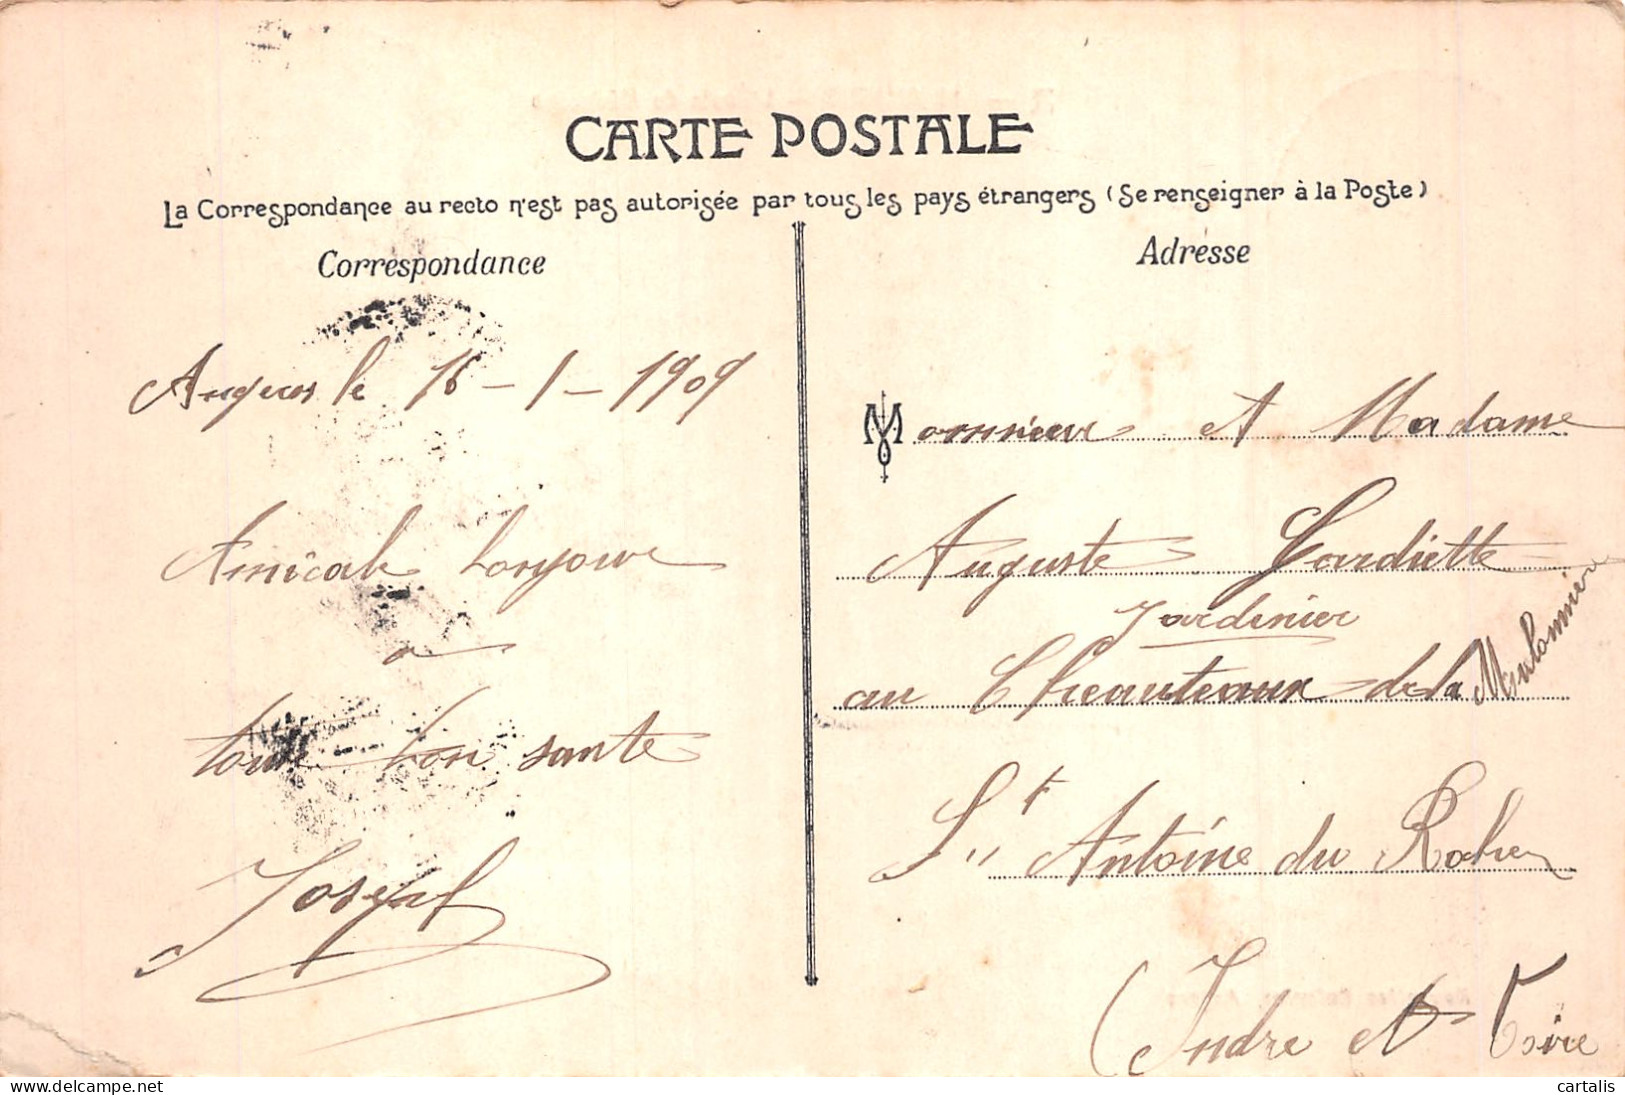 CARTE POSTALE
La Correspondance au recto n'est pas autorisée par tous les pays étrangers (Se renseigner à la Poste)
Correspondance
Angers le 16 - 1 - 1909
Amicale bonjour
a
tous bon sante
Joseph
Adresse
Monsieur et Madame
Auguste Gardiette
Jardinier
au Cheauteaux de la Moulonniere
St Antoine du Rocher
(Indre et Loire
cartalis